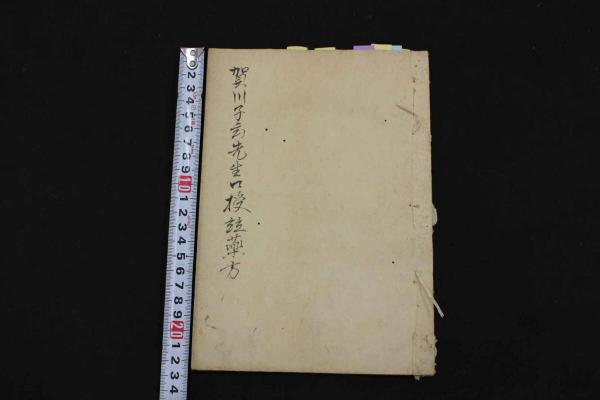 賀川子玄先生口授並藥方
2 3 4 5 6 7 8 9 10 1 2 3 4 5 6 7 8 9 20 1 2 3 4